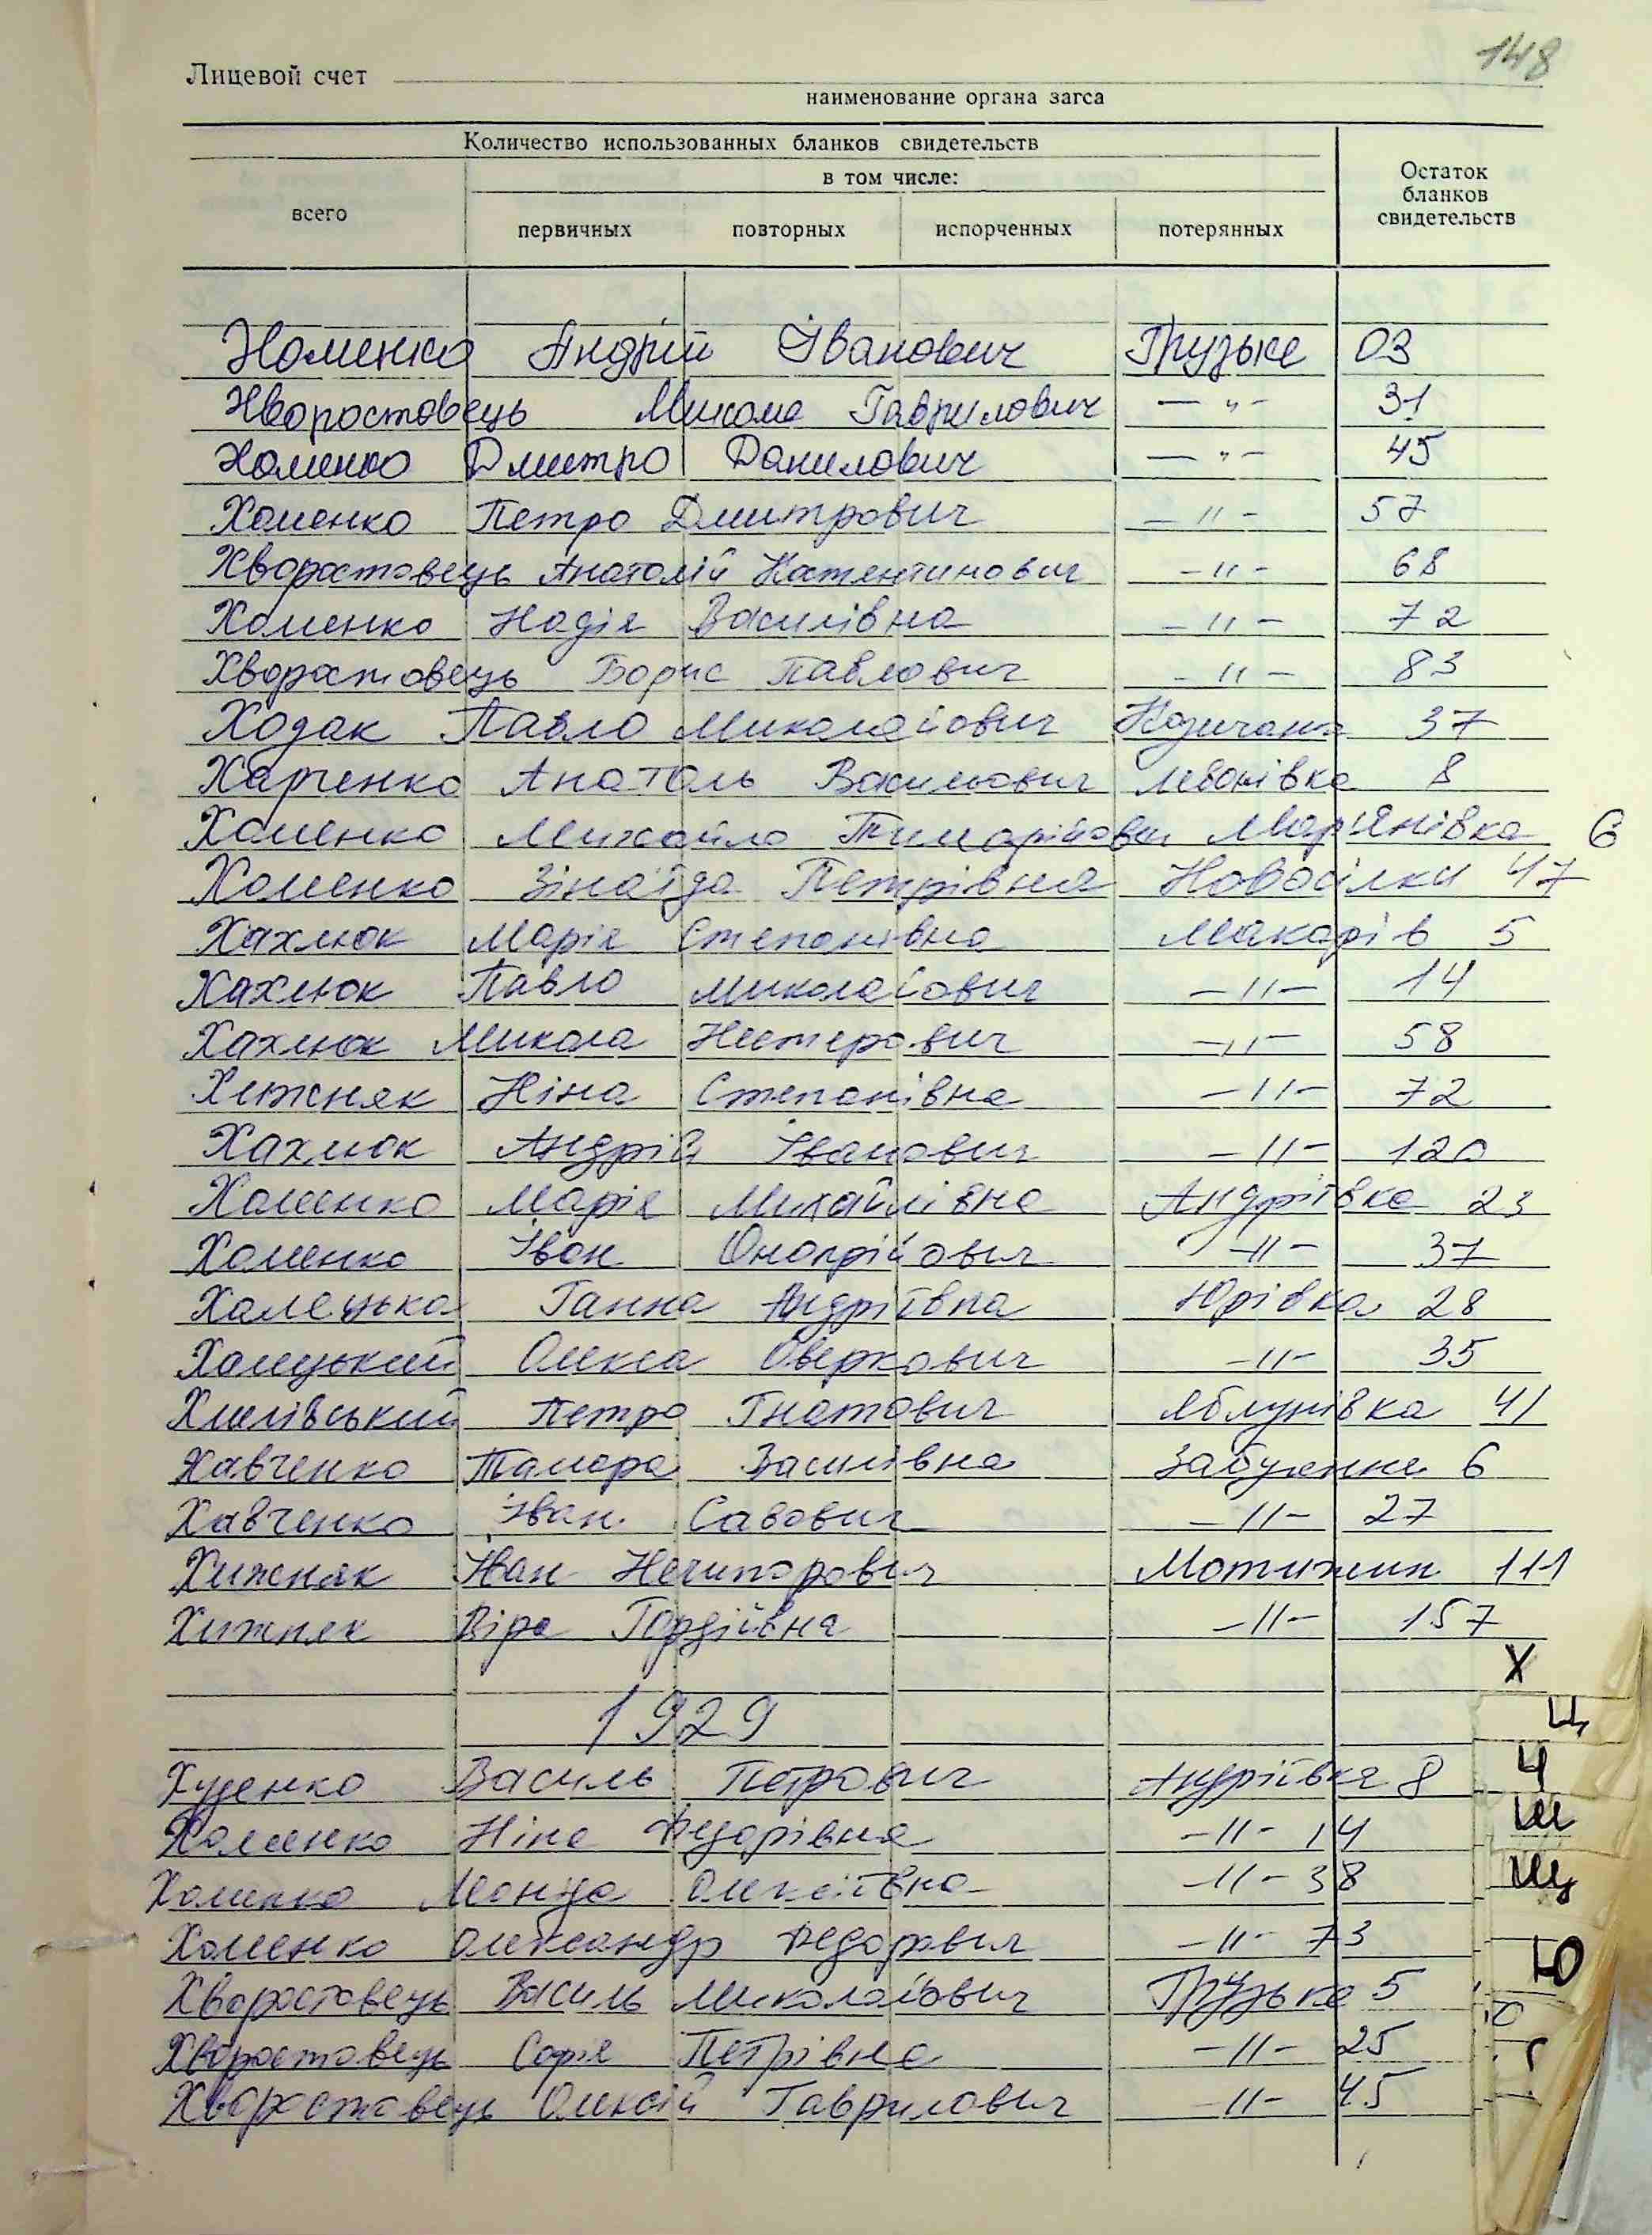 148
Лицевой счет
наименование органа загса
Количество использованных бланков свидетельств
в том числе:
всего первичных повторных испорченных потерянных Остаток бланков свидетельств
Хоменко Андрій Іванович Грузьке 03
Хворостовець Микола Гаврилович —〃— 31
Хоменко Дмитро Данилович —〃— 45
Хоменко Петро Дмитрович —〃— 57
Хворостовець Анатолій —〃— 68
Хоменко Надія Василівна —〃— 72
Хворостовець Борис Павлович —〃— 83
Ходак Павло Миколайович 37
Харченко Анатоль Васильович 8
Хоменко Михайло Мар'янівка 6
Хоменко Зінаїда Петрівна Новосілки 47
Хахлюк Марія Степанівна Макарів 5
Хахлюк Павло Миколайович —〃— 14
Хахлюк Микола Нестерович —〃— 58
Хижняк Ніна Степанівна —〃— 72
Хахлюк Андрій Іванович —〃— 120
Хоменко Марія Михайлівна Андріївка 23
Хоменко Іван Онопрійович —〃— 37
Халецька Ганна Андріївна Юрівка 28
Халецький Олекса Оверкович —〃— 35
Петро Гнатович Яблунівка 41
Хавченко Тамара Василівна Забуяння 6
Хавченко Іван Савович —〃— 27
Хижняк Іван Нечипорович Мотижин 111
Хижняк Віра Гордіївна —〃— 157
Х
1929
Ц
Хуценко Василь Петрович Андріївка 8
Ч
Хоменко Ніна Федорівна —〃— 14
Ш
Хоменко Леоніда Олексіївна —〃— 38
Щ
Хоменко Олександр Федорович —〃— 73
Ю
Хворостовець Василь Миколайович Грузьке 5
Хворостовець Софія Петрівна —〃— 25
Хворостовець Олексій Гаврилович —〃— 45